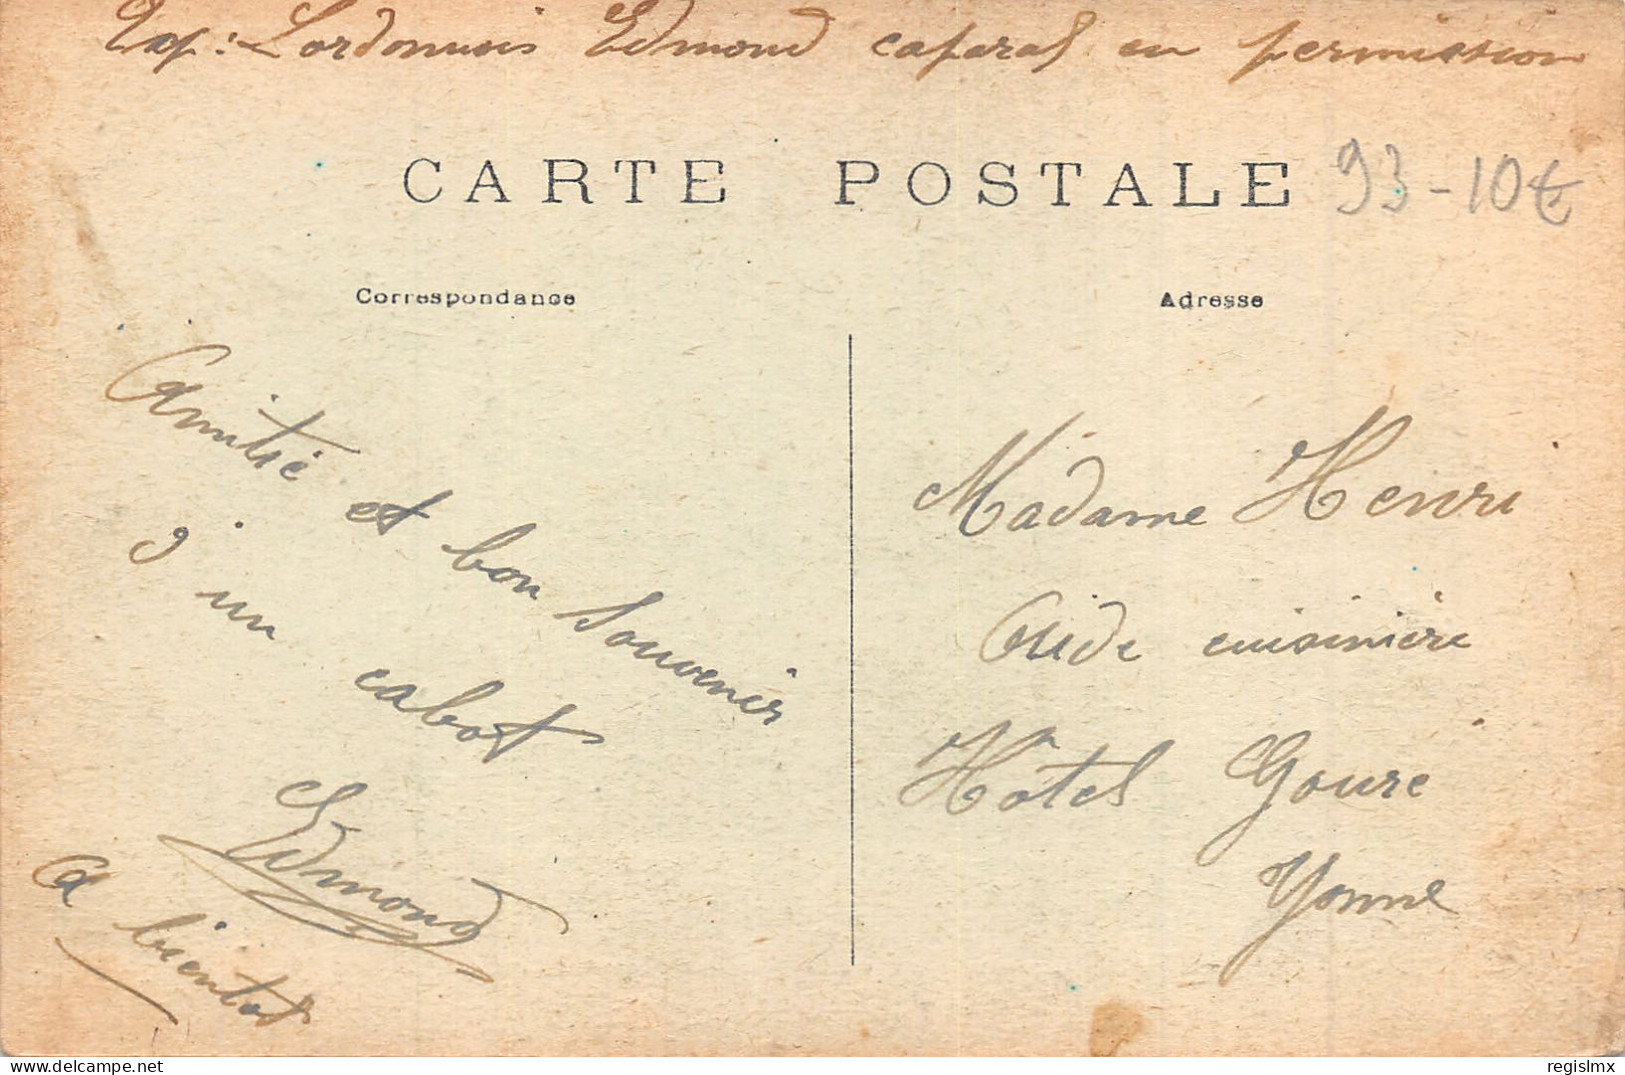 Exp: Lordonnois Edmond caporal en permission
CARTE POSTALE 93-10€
Correspondance
Amitié et bon souvenir
d'un cabot
Edmond
a bientot
Adresse
Madame Henri
Aide cuisinière
Hôtel Gouré
Yonne
regislmx